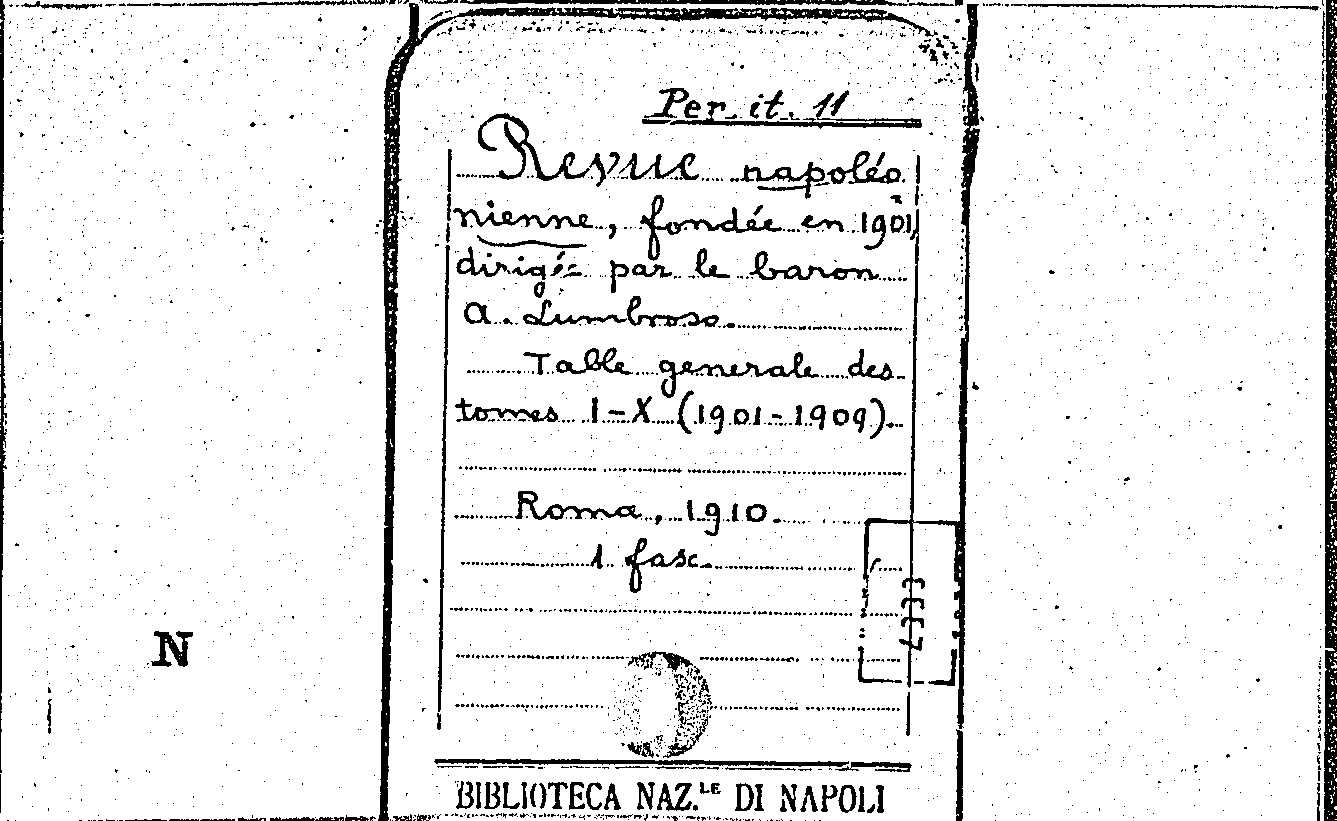 Per. it. 11
Revue napoléo
nienne, fondée en 1901,
dirigée par le baron
A. Lumbroso.
Table generale des
tomes I-X (1901-1909).
Roma, 1910.
1 fasc.
N
BIBLIOTECA NAZ.LE DI NAPOLI